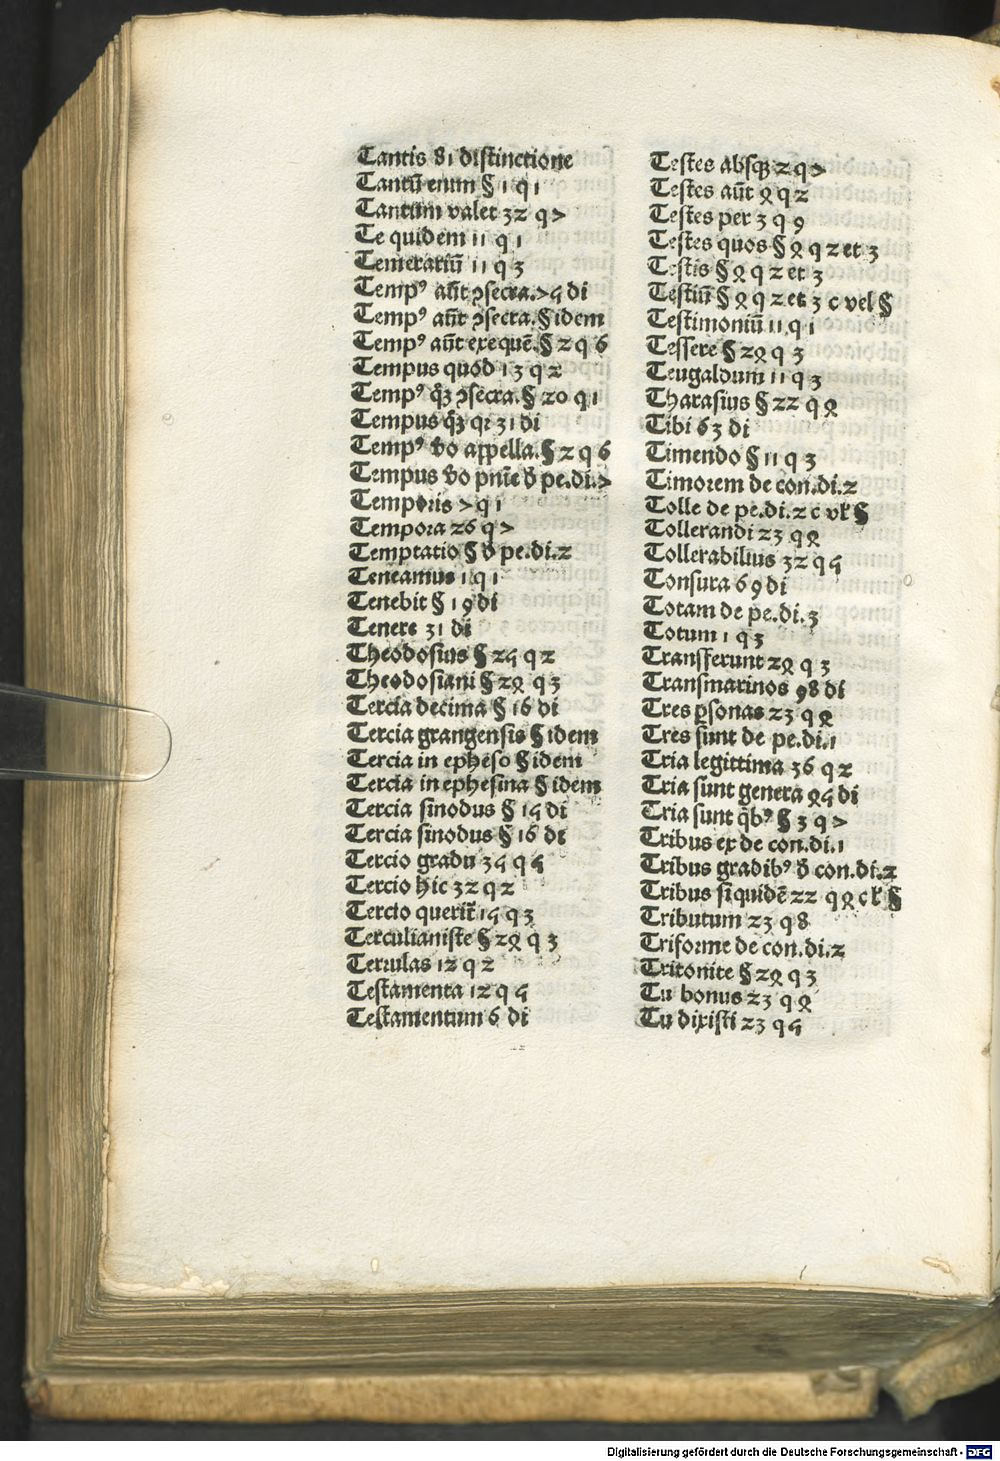 Tantis 81 distinctione
Tantū enim § 1 q 1
Tantum valet 32 q 7
Te quidem 11 q 1
Temerariū 11 q 3
Tempꝰ aūt ꝯsecra. 75 di
Tempꝰ aūt ꝯsecra. § idem
Tempꝰ aūt exequē. § 2 q 6
Tempus quod 13 q 2
Tempꝰ ꝯsecra. § 20 q 1
Tempus qꝫ qi 31 di
Tempꝰ v̄o appella. § 2 q 6
Tempus v̄o pnīe d̄ pe. di. 7
Temporis 7 q 1
Tempora 26 q 7
Temptatio § d̄ pe. di. 2
Teneamus 1 q 1
Tenebit § 19 di
Tenere 31 di
Theodosius § 25 q 2
Theodosiani § 24 q 3
Tercia decima § 16 di
Tercia grangensis § idem
Tercia in epheso § idem
Tercia in ephesina § idem
Tercia sinodus § 15 di
Tercia sinodus § 16 di
Tercio gradu 35 q 5
Tercio hic 32 q 2
Tercio querit̄ 15 q 3
Terculianiste § 24 q 3
Terrulas 12 q 2
Testamenta 12 q 5
Testamentum 6 di
Testes absqꝫ 2 q 7
Testes aūt 4 q 2
Testes per 3 q 9
Testes quos § 4 q 2 et 3
Testis § 4 q 2 et 3
Testiū § 4 q 2 et 3 c vel §
Testimoniū 11 q 1
Tessere § 24 q 3
Teugaldum 11 q 3
Tharasius § 22 q 4
Tibi 63 di
Timendo § 11 q 3
Timorem de con. di. 2
Tolle de pe. di. 2 c vł §
Tollerandi 23 q 4
Tollerabilius 32 q 5
Tonsura 69 di
Totam de pe. di. 3
Totum 1 q 3
Transferunt 24 q 3
Transmarinos 98 di
Tres ꝑsonas 23 q 4
Tres sunt de pe. di. 1
Tria legittima 36 q 2
Tria sunt genera 45 di
Tria sunt q̄bꝰ § 3 q 7
Tribus ex de con. di. 1
Tribus gradibꝰ d̄ con. di. 2
Tribus siquidē 22 q 4 c ł §
Tributum 23 q 8
Triforme de con. di. 2
Tritonite § 24 q 3
Tu bonus 23 q 4
Tu dixisti 23 q 5
Digitalisierung gefördert durch die Deutsche Forschungsgemeinschaft - DFG